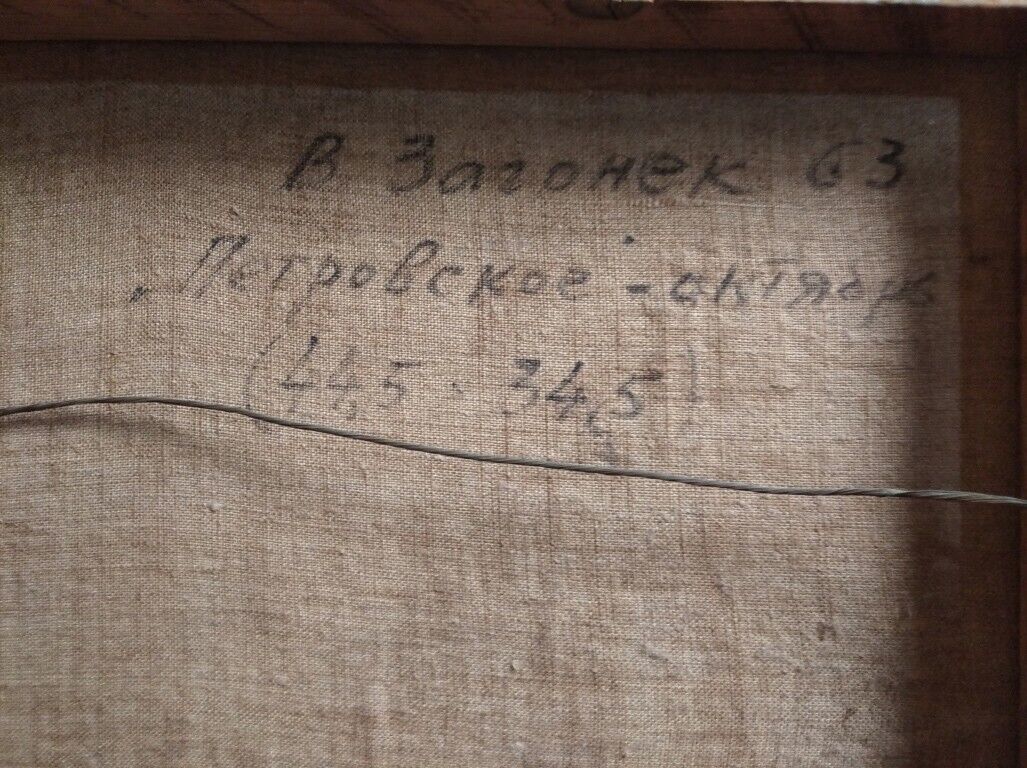 В Загонек 63
„Петровское" - октябрь
(44,5 · 34,5)